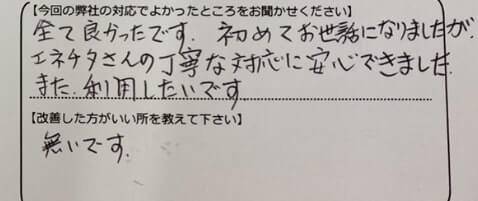 【今回の弊社の対応でよかったところをお聞かせください】
全て良かったです. 初めてお世話になりましたが.
エネチタさんの丁寧な対応に安心できました.
また.利用したいです
【改善した方がいい所を教えて下さい】
無いです.